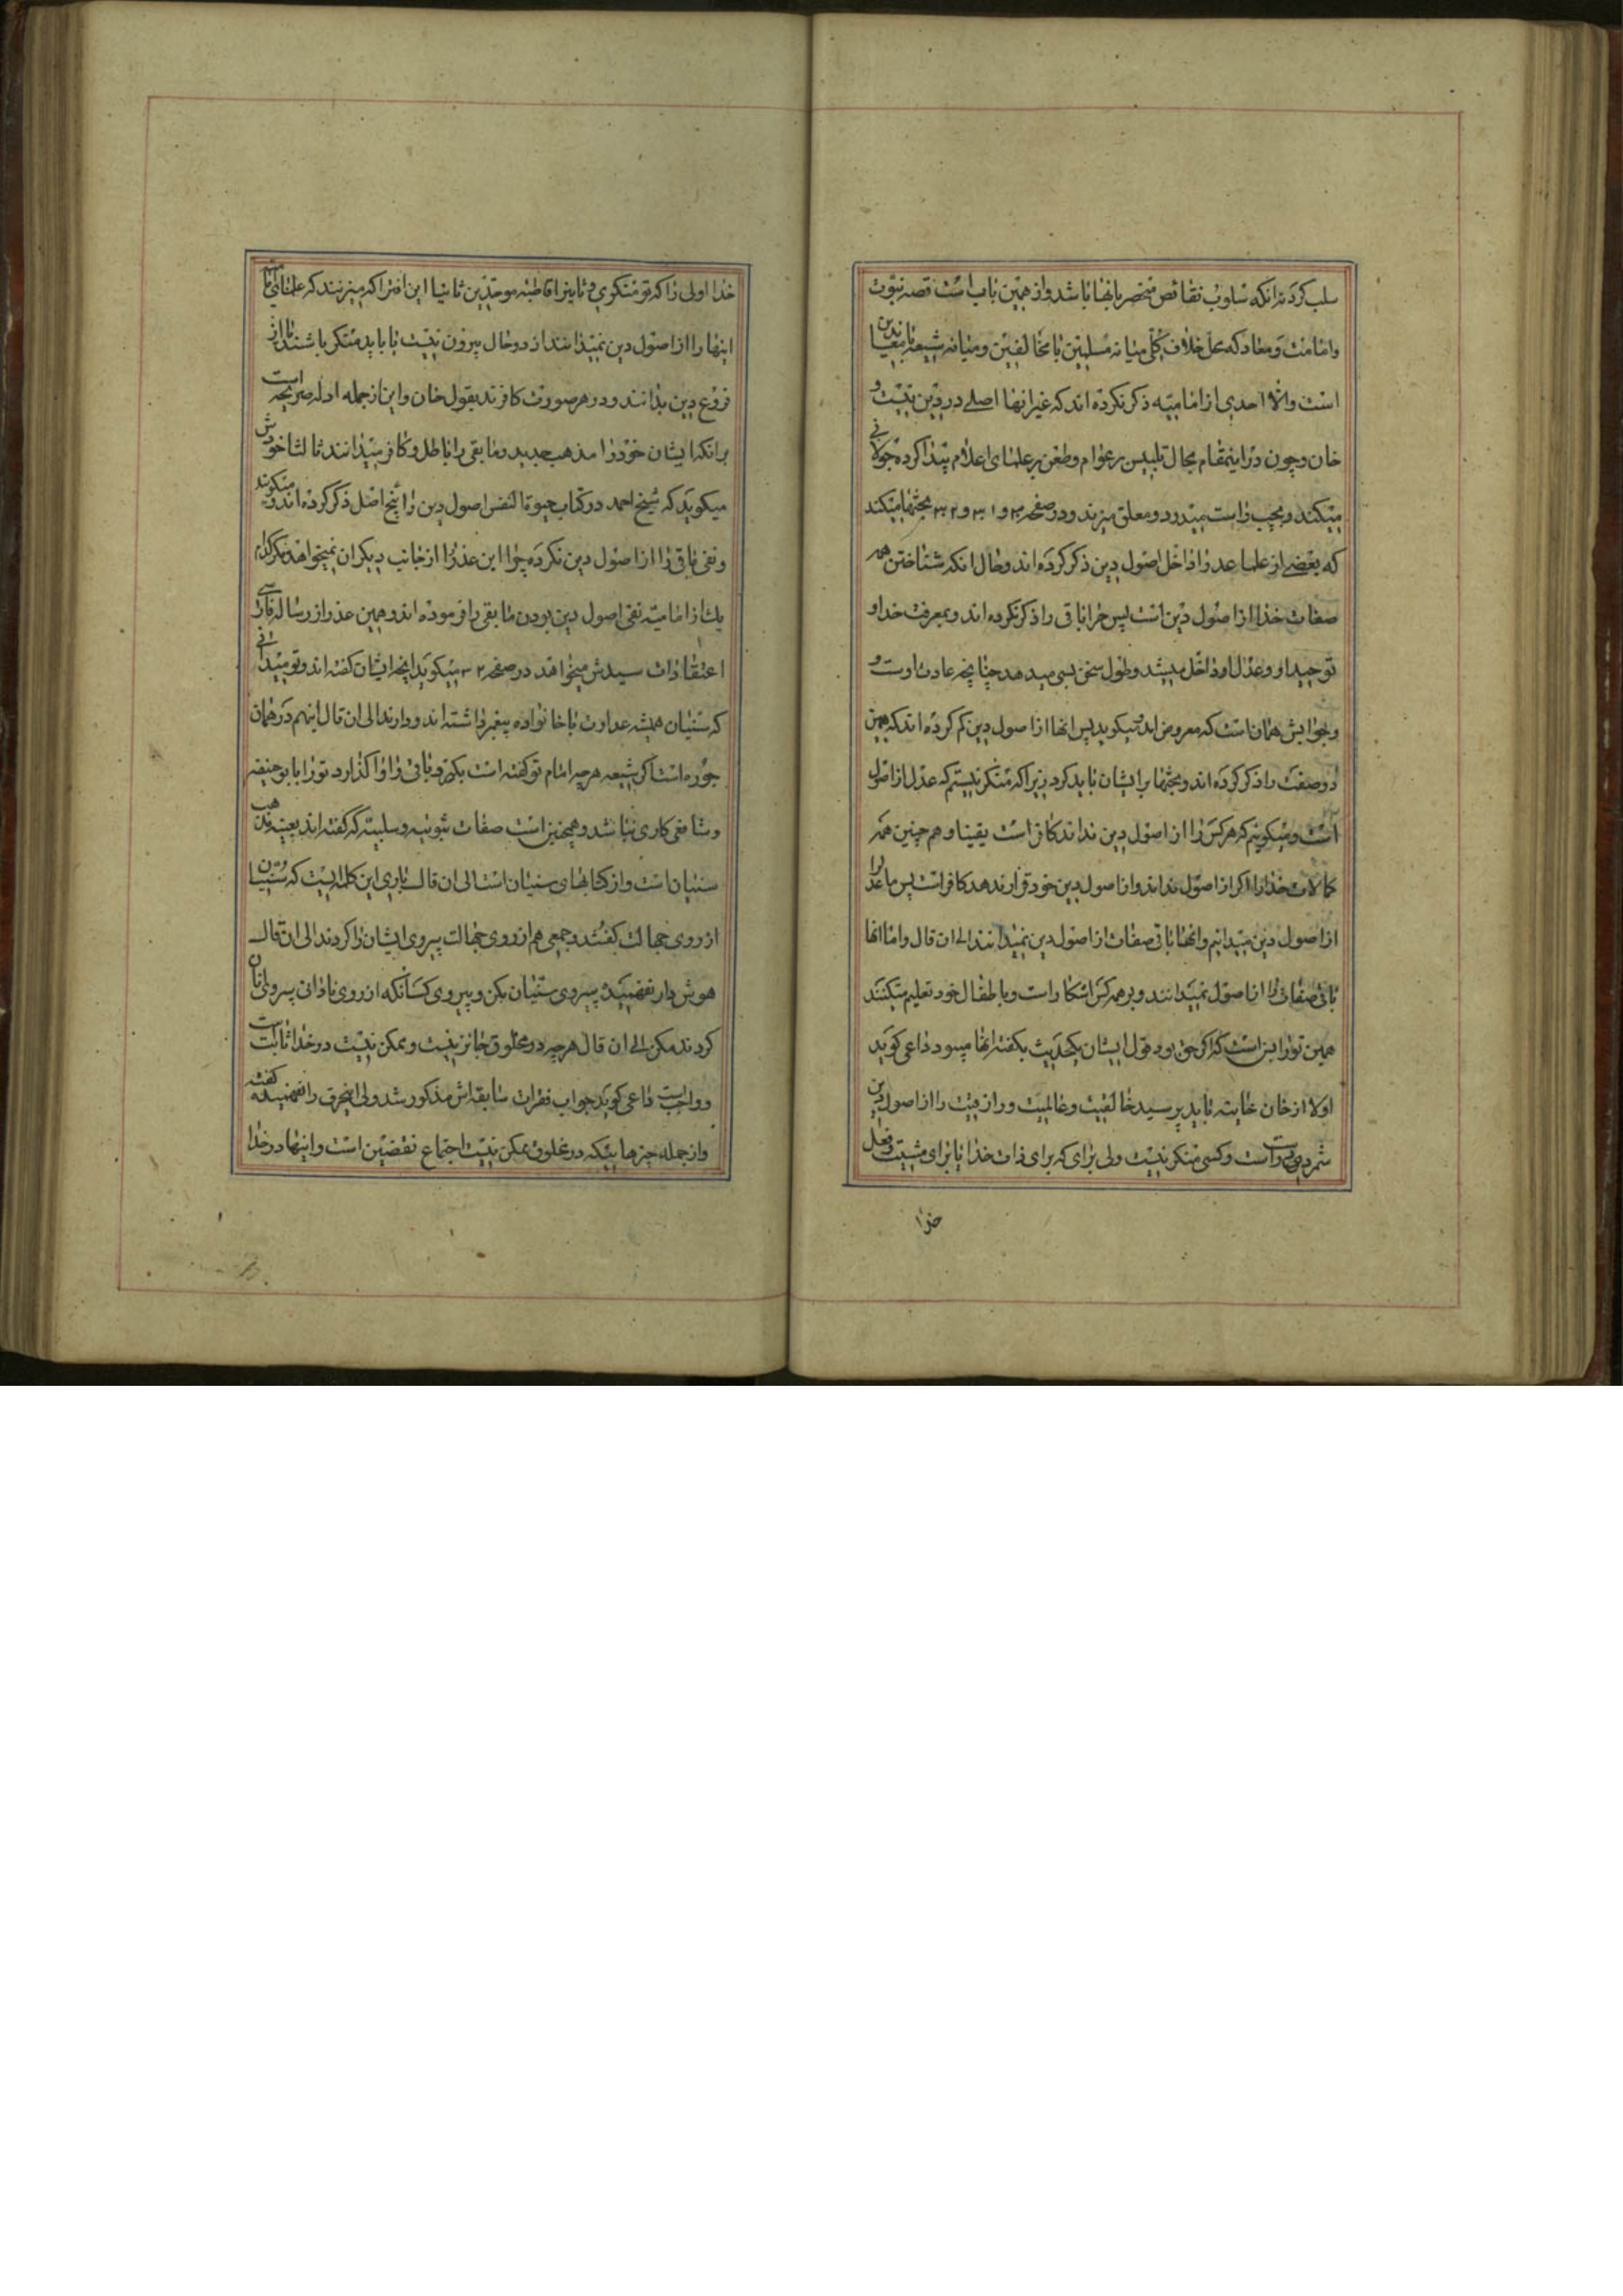 سلب کردنه انکه سلوب نقائص منحصر بانها باشد و از همین باب است قصه نبوت
و امامت و معاد که محل خلاف کلی میانه مسلمین با مخالفین و میانه شیعه با معاندین
است والا احدی از امامیه ذکر نکرده اند که غیر انها اصلی در دین نیست و
خان و چون در اینمقام مجال تلبیس بر عوام و طعن بر علمای اعلام پیدا کرده جولانی
میکند و بچپ و راست میدود و معلق میزند و در صفحه ۳۰ و ۳۱ و ۳۲ بحثها میکند
که بعضی از علما عدل را داخل اصول دین ذکر کرده اند و حال انکه شناختن همه
صفات خدا از اصول دین است پس چرا باقی را ذکر نکرده اند و بمعرفت خدا و
توحید او و عدل او داخل میشد و طول سخن بسی میدهد چنانچه عادت اوست و
و جوابش همان است که معروض امد میکوید پس انها از اصول دین کم کرده اند که همین
دو صفت را ذکر کرده اند و بحثها بر ایشان باید کرد زیرا که منکر نیستم که عدل از اصول
است و میکویم که هر کس را از اصول دین نداند کافر است یقینا و هم چنین همه
کمالات خدا را اکر از اصول نداند و از اصول دین خود قرار ندهد کافر است پس ما عدل را
از اصول دین میدانیم و انها باقی صفات از اصول دین نمیدانند الی ان قال و اما انها
باقی صفات را از اصول نمیدانند و بر همه کس اشکار است و باطفال خود تعلیم میکنند
همین تو را بس است که اکر حق بود قول ایشان یکحدیث بکفته انها میبود داعی کوید
اولا از خان غایته باید پرسید خالقیت و عالمیت و رازقیت را از اصول دین
شمردن است و کسی منکر نیست ولی برای که برای ذات خدا یا برای مشیت و فعل
خدا
خدا اولی را که تو منکوی و ثانیرا قاطبه موحدین ثانیا این افترا که میزنند که علمای ما
اینها را از اصول دین نمیدانند از دو حال بیرون نیست یا باید منکر باشند یا از
فروع دین بدانند و در هر صورت کافرند بقول خان و این از جمله ادله صریحه است
برانکه ایشان خود را مذهب جدید و مابقی را باطل و کافر میدانند ثالثا خودش
میکوید که شیخ احمد در کتاب حیوة النفس اصول دین را پنج اصل ذکر کرده اند و میکوید
و نفی باقی را از اصول دین نکرده چرا این عذر را از جانب دیکران نمیخواهد مکر کدام
یک از امامیه نفی اصول دین بودن مابقی را فرموده اند و همین عذر از رساله فارسی
اعتقادات سیدش میخواهد در صفحه ۳۲ میکوید انچه ایشان کفته اند و تو میدانی
که سنیان همیشه عداوت با خانواده پیغمبر داشته اند و دارند الی ان قال اینهم در همان
جوره است اکر شیعه هر چه امام تو کفته است بکیر و باقی را واکذار و تو را با بوحنیفه
و شافعی کاری نباشد و همچنین است صفات ثبوتیه و سلبیه که کفته اند بعینه مذهب
سنیان است و از کتابهای سنیان است الی ان قال باری این کلمه ایست که سنیان
از روی جهالت کفتند و جمعی هم از روی جهالت پیروی ایشان را کردند الی ان قال
هوش دار نفهمیده پیروی سنیان مکن و پیروی کسانکه از روی نادانی پیروی انان
کردند مکن الی ان قال هر چه در مخلوق جائز نیست و ممکن نیست در خدا ثابت است
و واجب است داعی کوید جواب فقرات سابقه اش مذکور شد ولی اینحرف را نفهمیده کفته
و از جمله چیزهائیکه در مخلوق ممکن نیست اجتماع نقیضین است و اینها در خدا